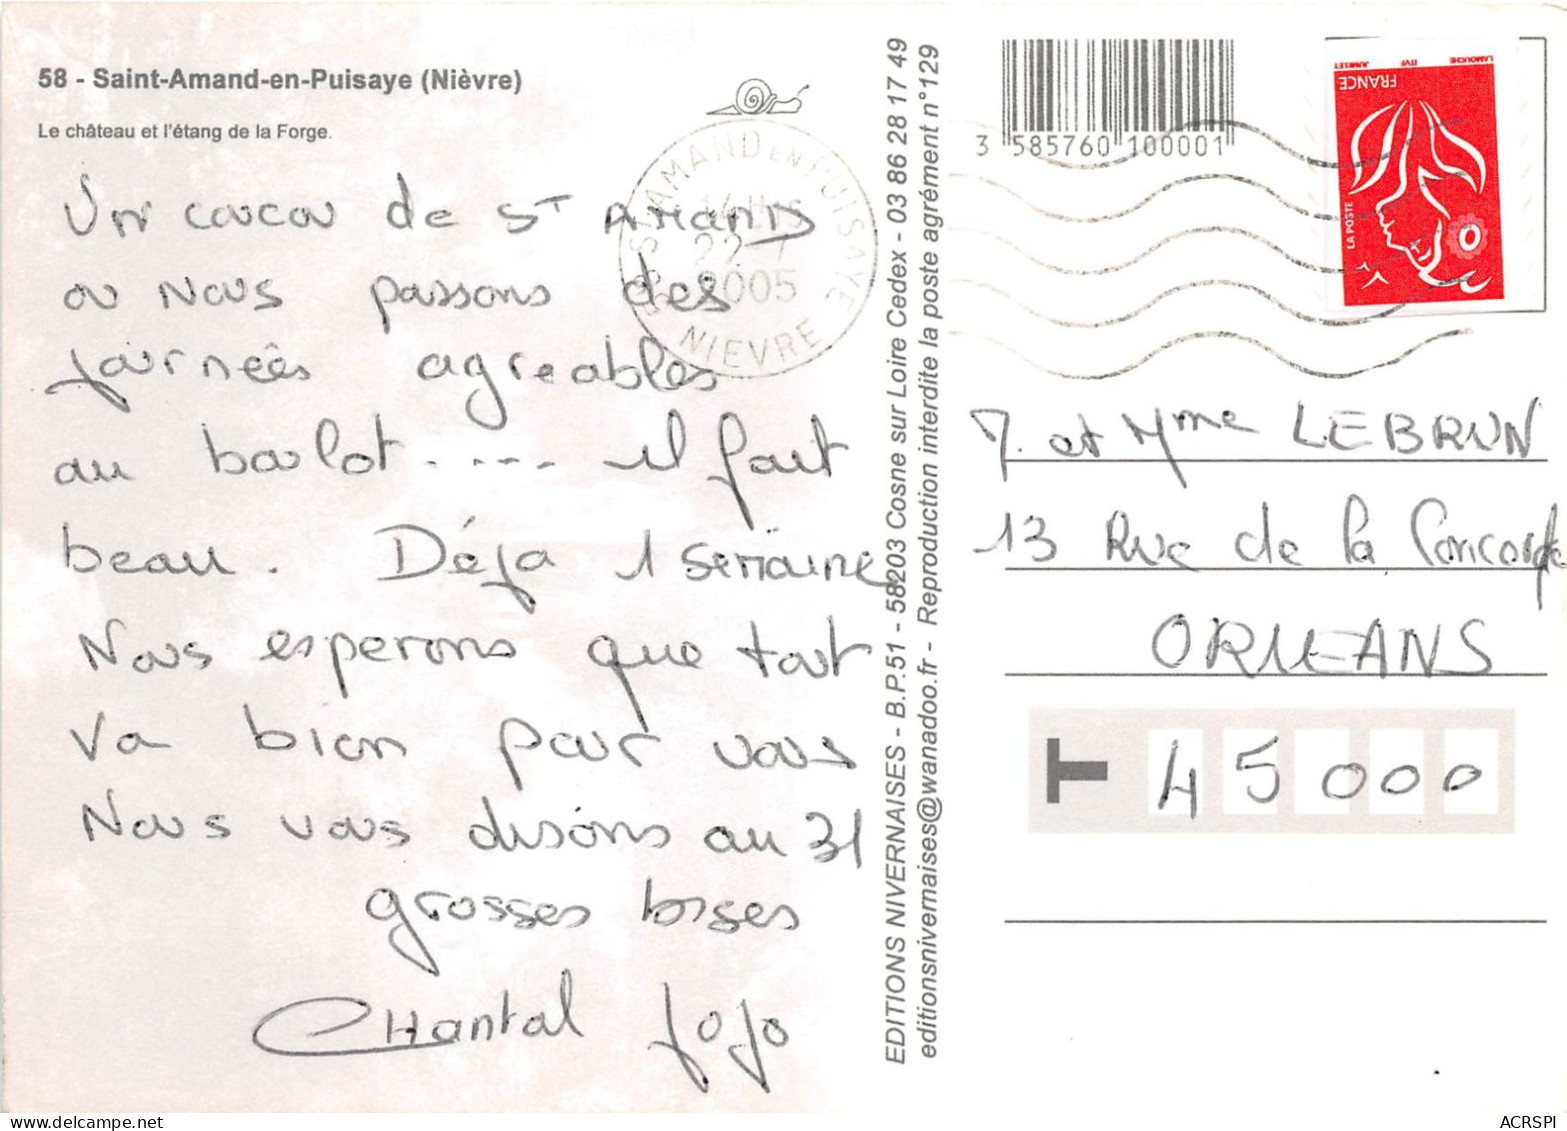 58 - Saint-Amand-en-Puisaye (Nièvre)
Le château et l'étang de la Forge.
Un coucou de St AMAND
ou Nous passons des
journeés agreables
au boulot ..... il fait
beau. Déja 1 semaine
Nous esperons que tout
va bien pour vous
Nous vous disons au 31
grosses bises
CHantal JoJo
ST AMAND EN PUISAYE
14 H
22 - 7
2005
NIEVRE
EDITIONS NIVERNAISES - B.P.51 - 58203 Cosne sur Loire Cedex - 03 86 28 17 49
editionsnivernaises@wanadoo.fr - Reproduction interdite la poste agrément n°129
3 585760 100001
LAMOUCHE ITVF JUMELET
FRANCE
LA POSTE
M. et Mme LEBRUN
13 Rue de la Concorde
ORLEANS
T 45000
ACRSPI